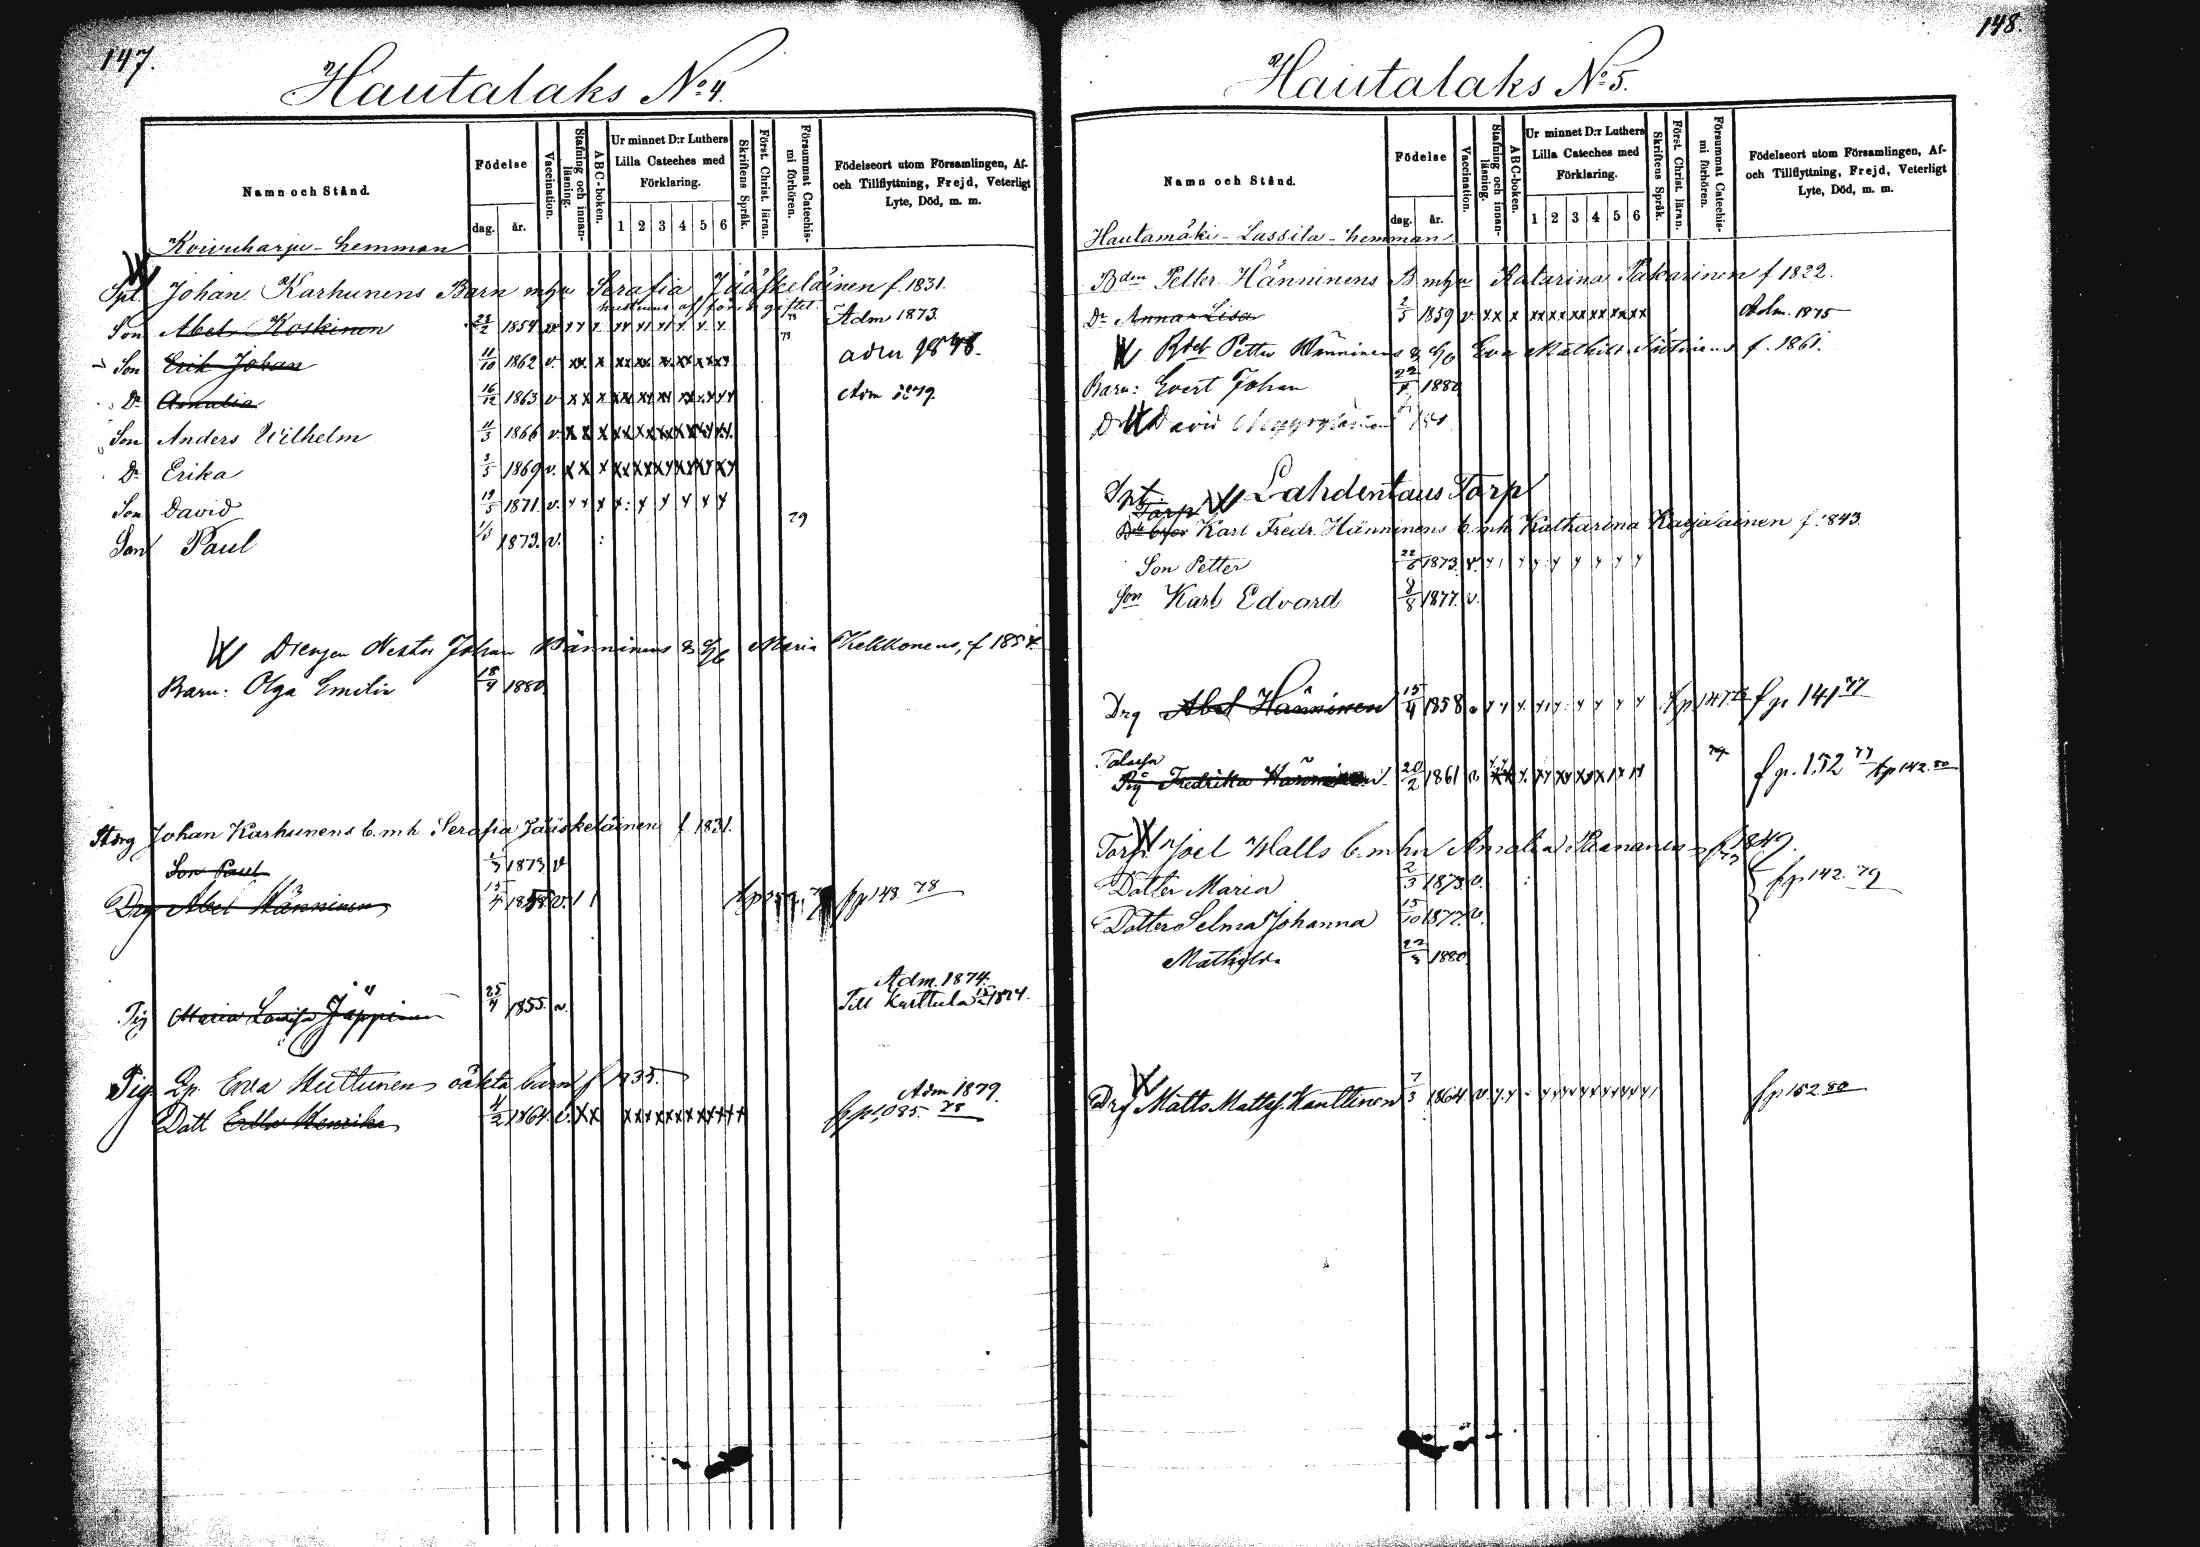 147.
Hautalaks No 4.
Namn och Stånd.
Födelse
dag. år.
Vaccination.
Stafning och innanläsning.
ABC-boken.
Ur minnet D:r Luthers Lilla Cateches med Förklaring.
1 2 3 4 5 6
Skriftens Språk.
Först. Christ. läran.
Försummat Catechismi förhören.
Födelseort utom Församlingen, Af- och Tillflyttning, Frejd, Veterligt Lyte, Död, m. m.
Koivuharju - hemman
Spt. Johan Karhunens Barn mhu Serafia Jääskeläinen f. 1831.
Son Abel Koskinen 1854 v Adm 1873.
Son Erik Johan 11/10 1862 v. adm 1878.
Dr Amalia 16/12 1863 v Adm 1879
Son Anders Wilhelm 11/3 1866 v.
Dr Erika 3/5 1869 v.
Son David 19/5 1871 v.
79
Son Paul 1873. v.
Drengen Nestor Johan Hänninens & Maria Kekkonens, f 1854.
Barn: Olga Emilia 18/4 1880
Johan Karhunens b. mh Serafia Jääskeläinen f 1831.
Son Paul 1873 v
Drg Abel Hänninen 15/4 1858 v. fp 148. 78
Adm. 1874.
Pig Maria Lovisa Jäppinen 25/4 1855. v. Till Karttula 1874.
Pig Eva Huttunens oäkta barn f 1835.
Adm 1879.
Datt Henrika 1864. v.
148.
Hautalaks No 5.
Namn och Stånd.
Födelse
dag. år.
Vaccination.
Stafning och innanläsning.
ABC-boken.
Ur minnet D:r Luthers Lilla Cateches med Förklaring.
1 2 3 4 5 6
Skriftens Språk.
Först. Christ. läran.
Försummat Catechismi förhören.
Födelseort utom Församlingen, Af- och Tillflyttning, Frejd, Veterligt Lyte, Död, m. m.
Hautamäki - Lassila - hemman
Bden Petter Hänninens B mhu Katarina Pakarinen f 1822.
Dr Anna Lisa 2/5 1859 v. Adm. 1875
Petter Hänninens & Eva Mathilda f. 1861.
Barn: Evert Johan 1880
David
Spt. Lahdentaus Torp
Torp
Karl Fredr. Hänninens b. mh Katharina Karjalainen f. 1843.
Son Petter 1873. v.
Son Karl Edvard 8/8 1877. v.
Drg Abel Hänninen 15/4 1858 v fp 141 77
Pig Fredrika Hänninen 20/2 1861 v fp. 152 77 tp 142. 80
Torp. Joel Halls b. mhu Amalia f 1849.
Dotter Maria 2/3 1873. v. fp 142. 79
Dotter Selma Johanna 15/10 1877. v.
Mathilda 1880
Drg Matts Matts. Kanttinen 7/3 1864 v. fp 152. 80